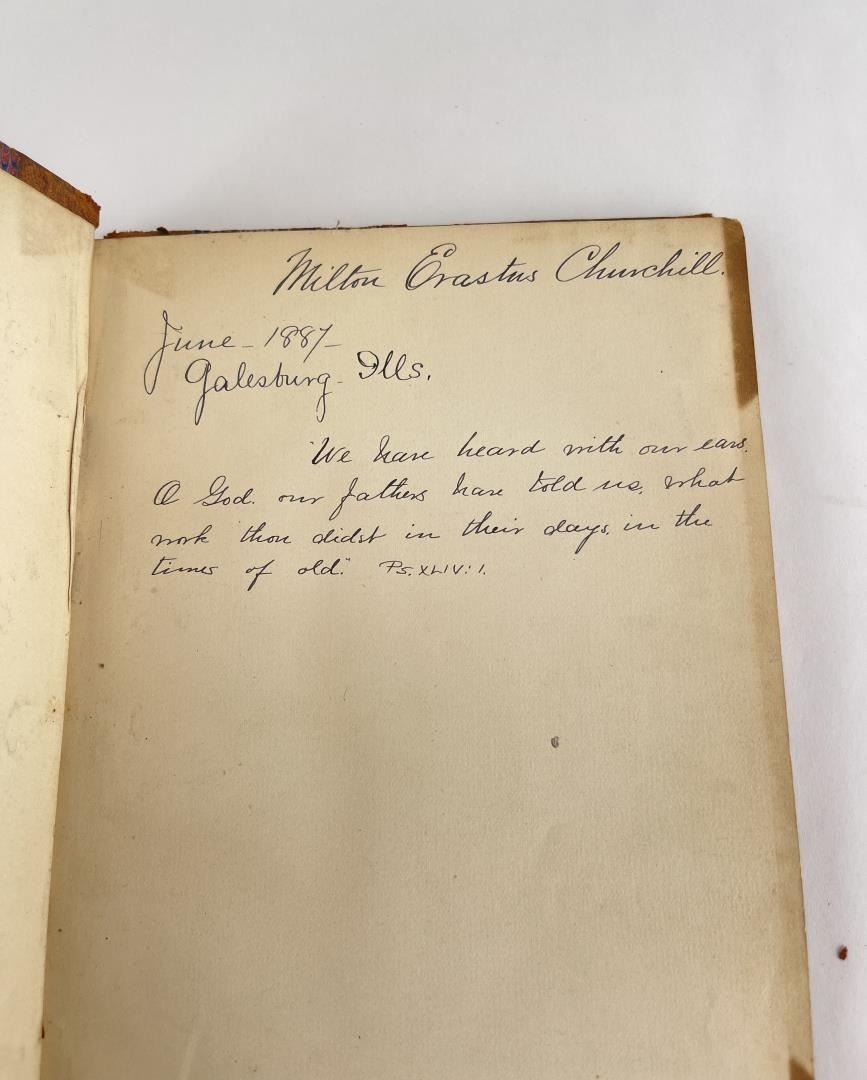 Milton Erastus Churchill.
June - 1887 -
Galesburg - Ills.
"We have heard with our ears,
O God, our fathers have told us, what
work thou didst in their days, in the
times of old." Ps. XLIV: 1.